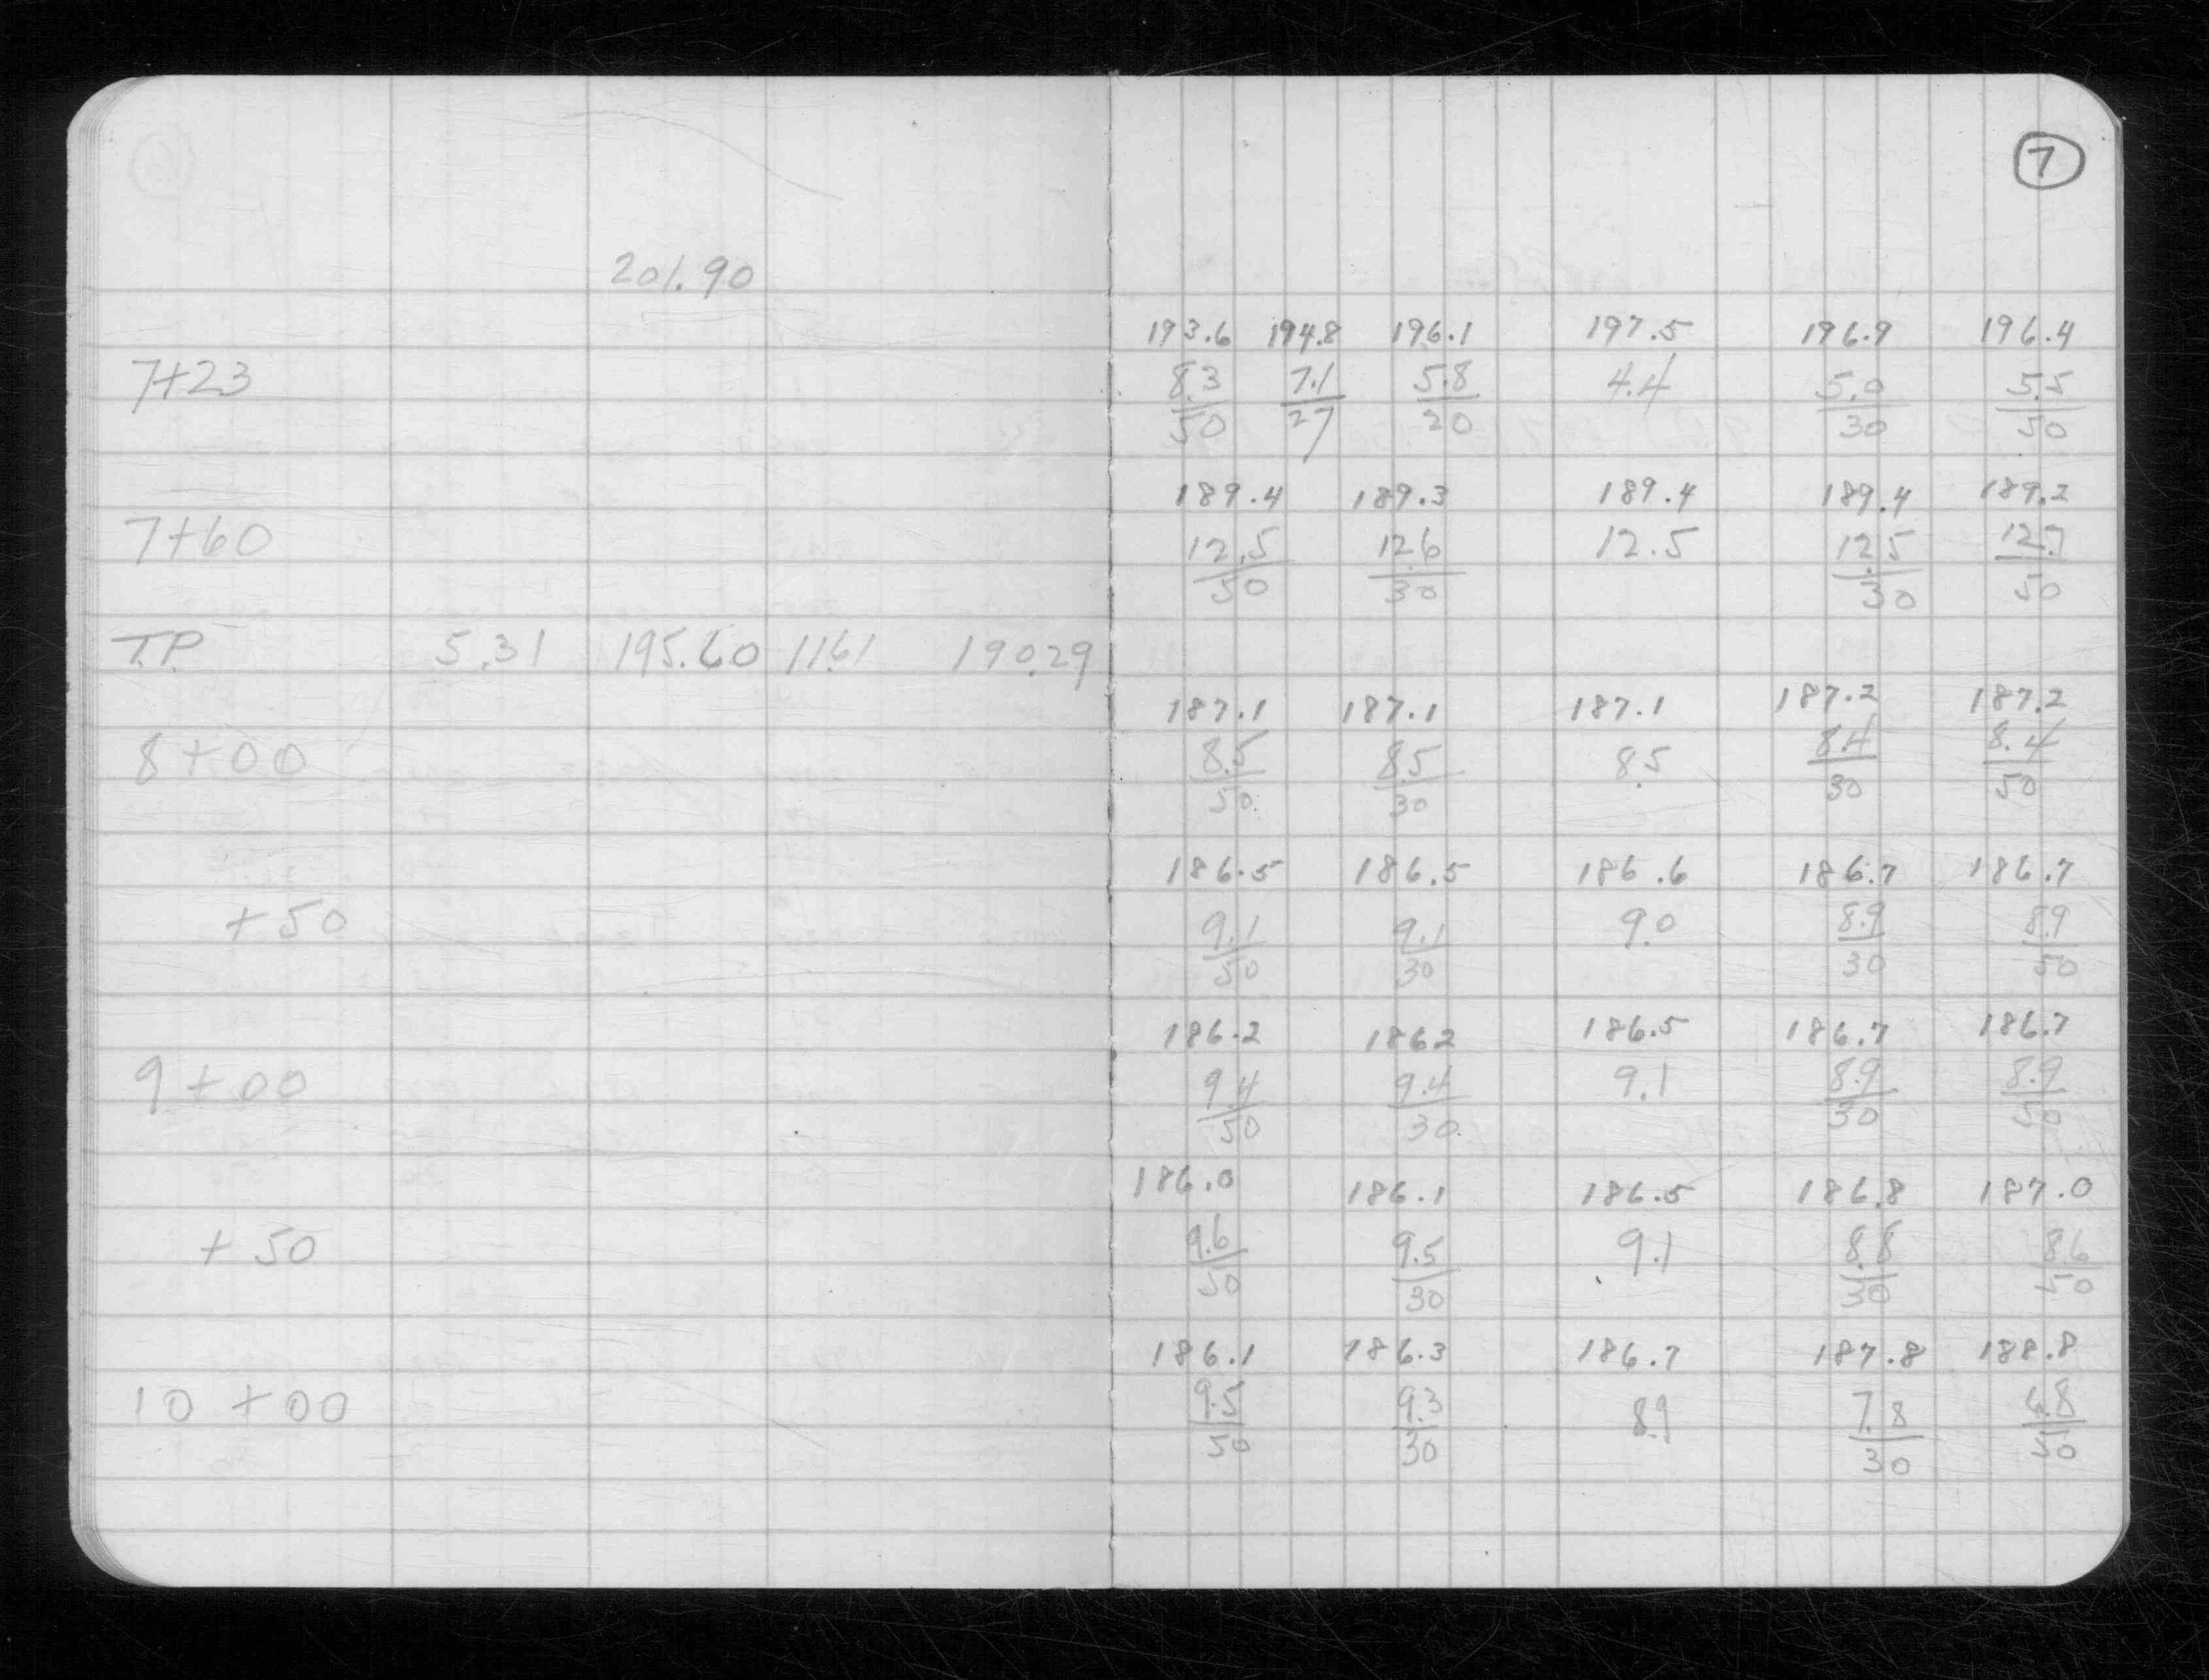 7
201.90
193.6 194.8 196.1 197.5 196.9 196.4
7+23 8.3 7.1 5.8 4.4 5.0 5.5
50 27 20 30 50
189.4 189.3 189.4 189.4 189.2
7+60 12.5 12.6 12.5 12.5 12.7
50 30 30 50
T.P. 5.31 195.60 11.61 190.29
187.1 187.1 187.1 187.2 187.2
8+00 8.5 8.5 8.5 8.4 8.4
50 30 30 50
186.5 186.5 186.6 186.7 186.7
+50 9.1 9.1 9.0 8.9 8.9
50 30 30 50
186.2 186.2 186.5 186.7 186.7
9+00 9.4 9.4 9.1 8.9 8.9
50 30 30 50
186.0 186.1 186.5 186.8 187.0
+50 9.6 9.5 9.1 8.8 8.6
50 30 30 50
186.1 186.3 186.7 187.8 188.8
10+00 9.5 9.3 8.9 7.8 6.8
50 30 30 50